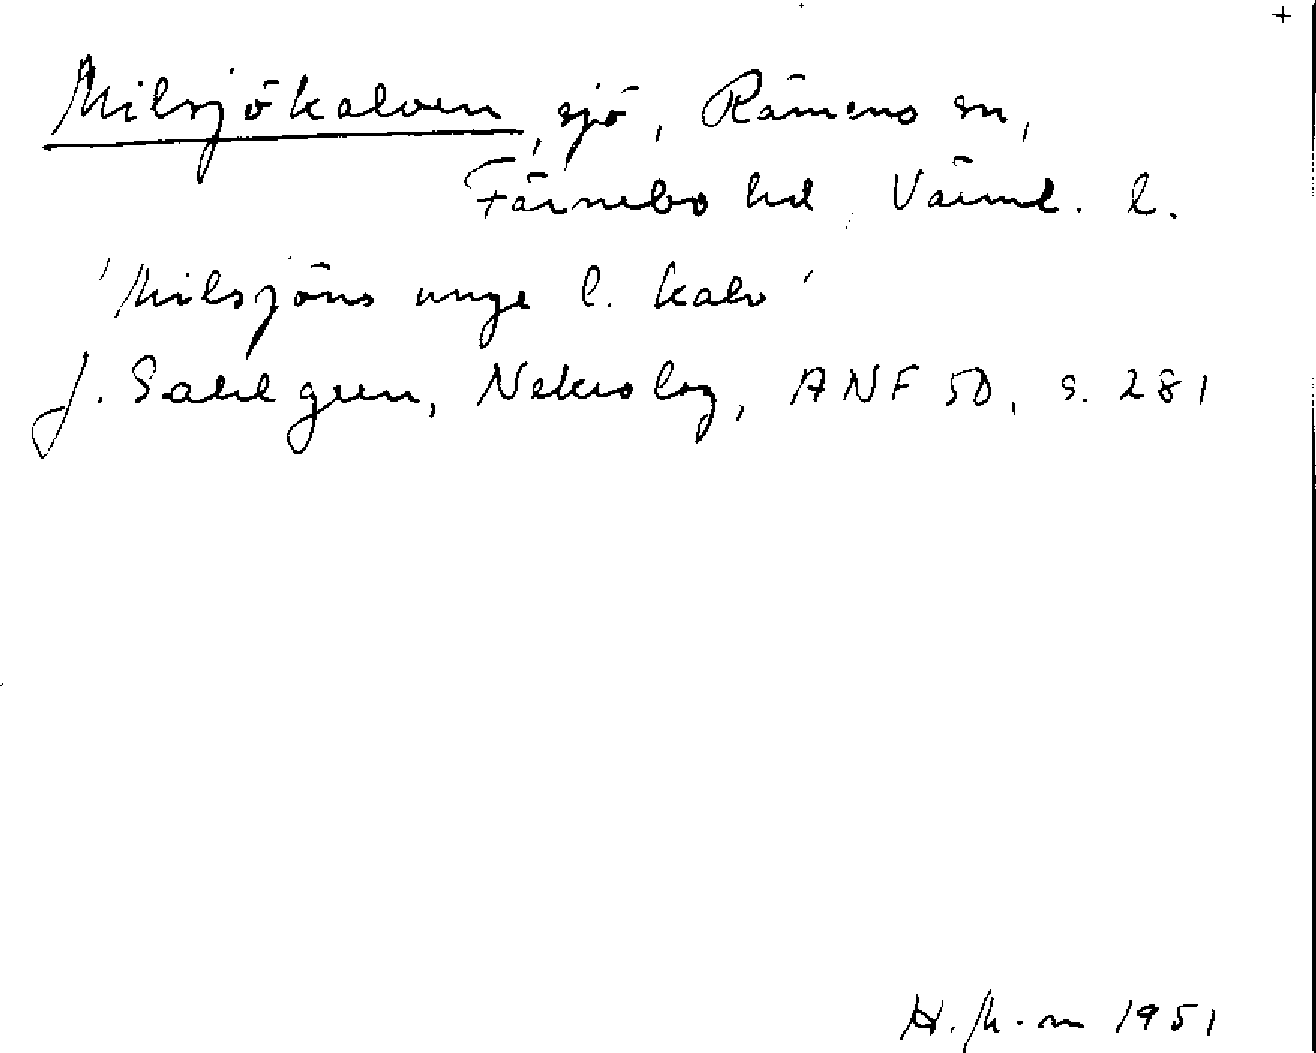 +
Milsjökalven, sjö, Rämens sn,
Färnebo hd, Värml. l.
'Milsjöns unge l. kalv'
J. Sahlgren, Nekrolog, ANF 50, s. 281
H. M-m 1951